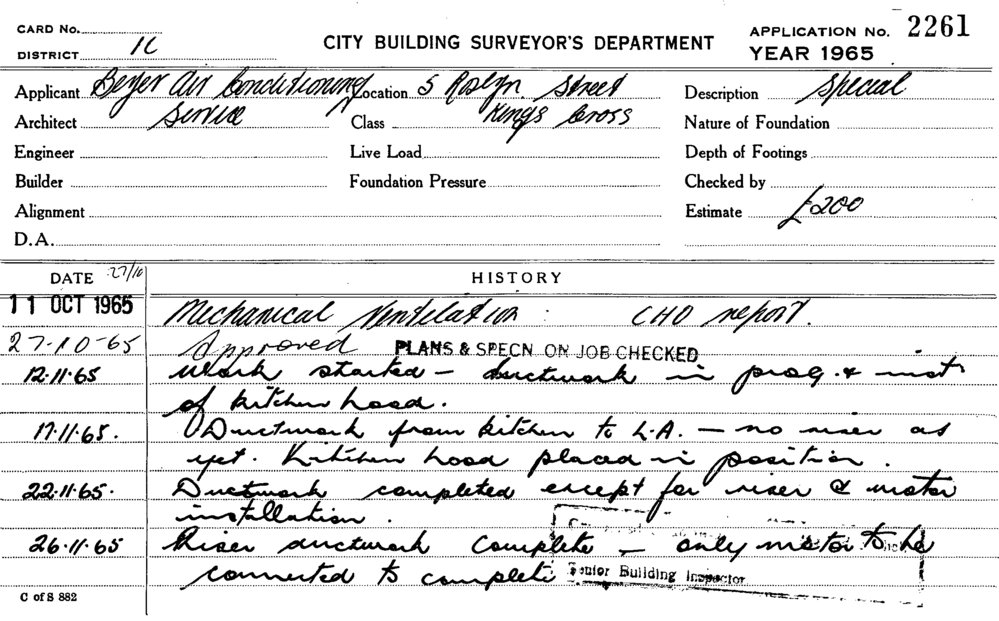 CARD No.
DISTRICT 1C
CITY BUILDING SURVEYOR'S DEPARTMENT
APPLICATION No. 2261
YEAR 1965
Applicant Beyer Air Conditioning Location 5 Roslyn Street Description Special
Architect Service Class Kings Cross Nature of Foundation
Engineer Live Load Depth of Footings
Builder Foundation Pressure Checked by
Alignment Estimate £200
D.A.
DATE 27/10 HISTORY
11 OCT 1965 Mechanical Ventilation : CHO report.
27-10-65 Approved PLANS & SPECN ON JOB CHECKED
12.11.65 Work started – ductwork in prog. & inst
of kitchen hood.
17.11.65. Ductwork from kitchen to L.A. – no riser as
yet. Kitchen hood placed in position.
22.11.65. Ductwork completed except for riser & motor
installation.
26.11.65 Riser ductwork complete – only motor to be
connected to complete Senior Building Inspector
C of S 882